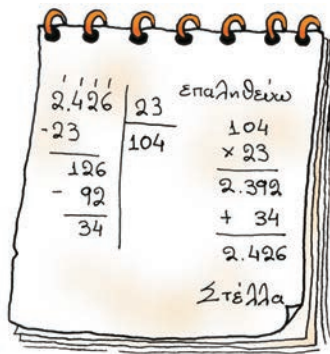 2.426 | 23
-23 | 104
126
- 92
34
επαληθεύω
104
× 23
2.392
+ 34
2.426
Στέλλα